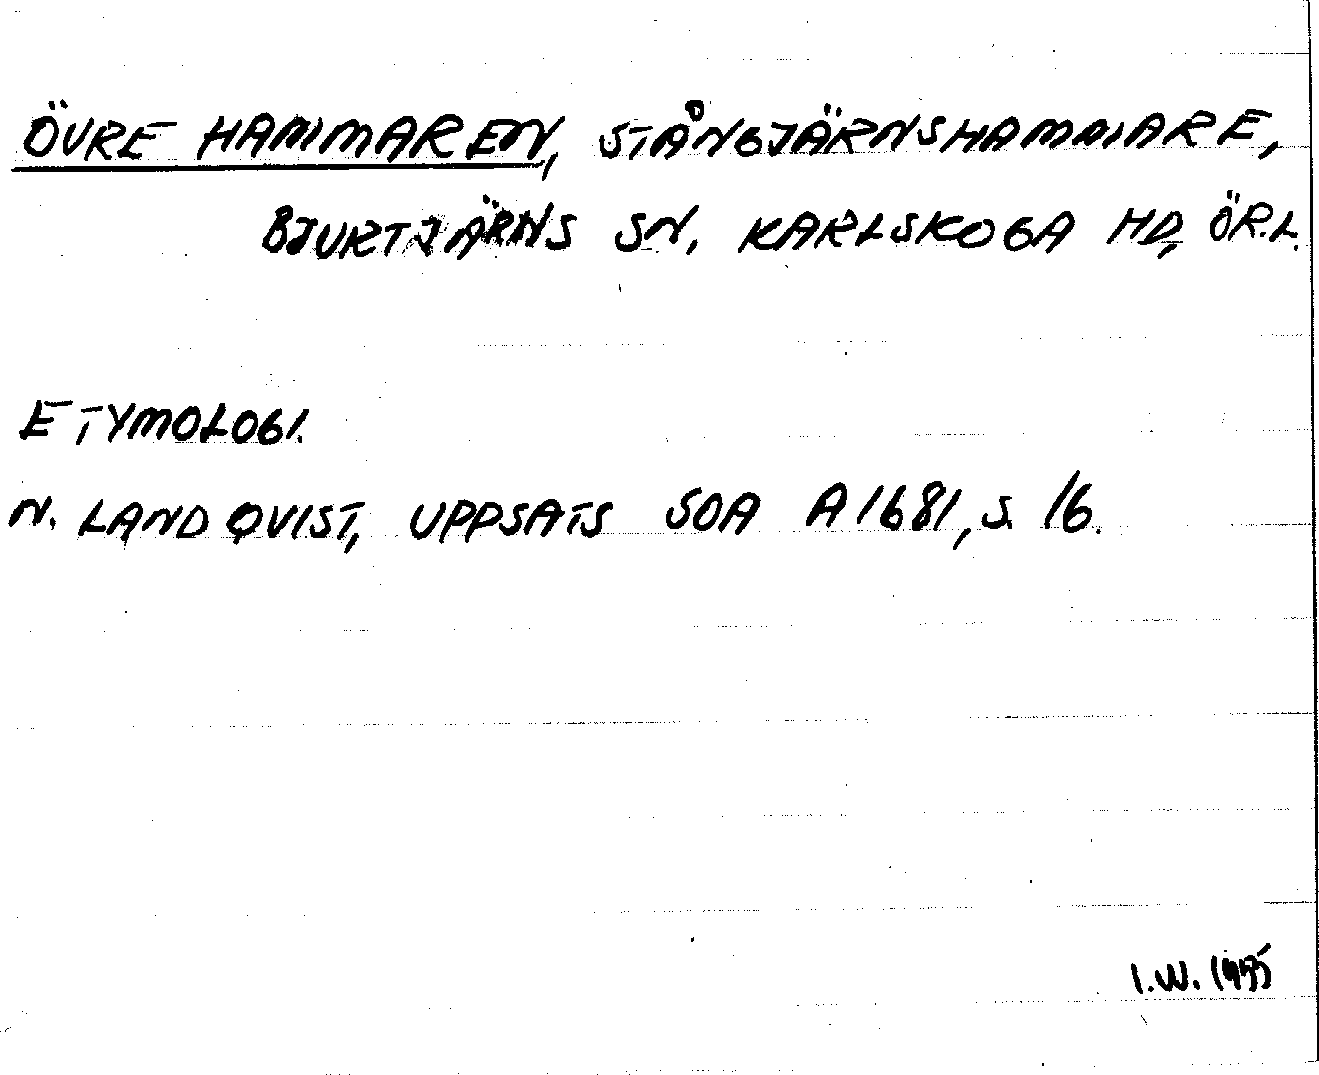 ÖVRE HAMMAREN, STÅNGJÄRNSHAMMARE,
BJURTJÄRNS SN, KARLSKOGA HD, ÖR.L.
ETYMOLOGI.
N. LANDQVIST, UPPSATS SOA A1681, S. 16.
I.W. 1975